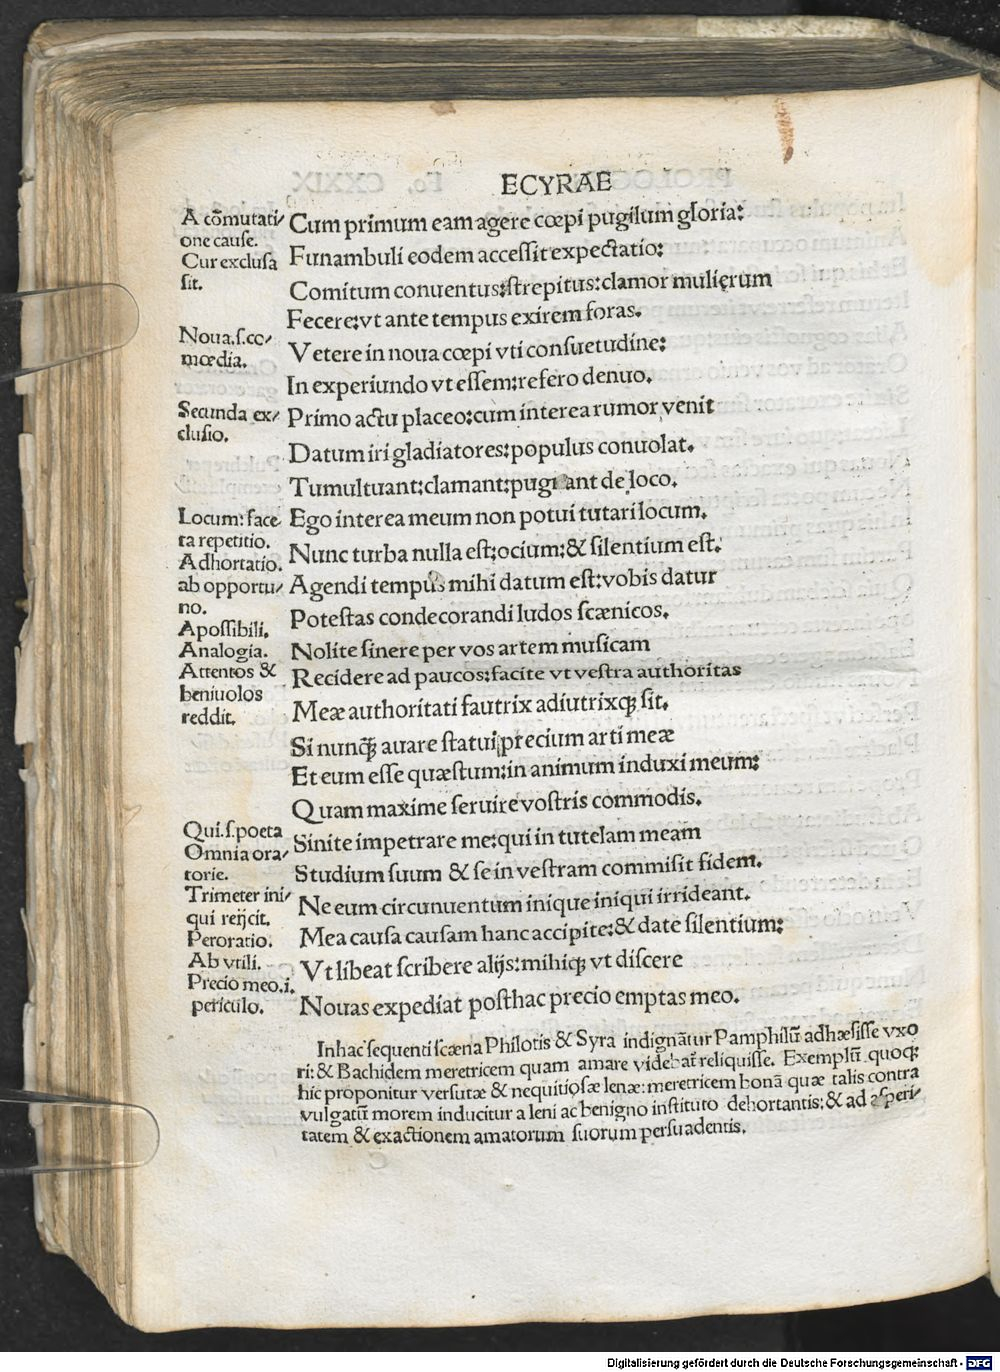 ECYRAE
A cõmutati⸗
one cause.
Cur exclusa
sit.
Noua.ſ.co⸗
mœdia.
Secunda ex⸗
clusio.
Locum: face
ta repetitio.
Adhortatio.
ab opportu⸗
no.
A possibili.
Analogia.
Attentos &
beniuolos
reddit.
Qui.ſ.poeta
Omnia ora⸗
torie.
Trimeter ini⸗
qui reijcit.
Peroratio.
Ab vtili.
Precio meo.i.
periculo.
Cum primum eam agere cœpi pugilum gloria:
Funambuli eodem acceſſit expectatio:
Comitum conuentus:ſtrepitus:clamor mulierum
Fecere:vt ante tempus exirem foras.
Vetere in noua cœpi vti conſuetudine:
In experiundo vt eſſem:refero denuo.
Primo actu placeo:cum interea rumor venit
Datum iri gladiatores:populus conuolat.
Tumultuant:clamant:pugnant de loco.
Ego interea meum non potui tutari locum.
Nunc turba nulla eſt:ocium:& ſilentium eſt:
Agendi tempus mihi datum eſt:vobis datur
Poteſtas condecorandi ludos ſcænicos.
Nolite ſinere per vos artem muſicam
Recidere ad paucos:facite vt veſtra authoritas
Meæ authoritati fautrix adiutrixq̃ ſit.
Si nunq̃ auare ſtatui precium arti meæ
Et eum eſſe quæſtum:in animum induxi meum:
Quam maxime ſeruire voſtris commodis.
Sinite impetrare me:qui in tutelam meam
Studium ſuum & ſe in veſtram commiſit fidem.
Ne eum circunuentum inique iniqui irrideant.
Mea cauſa cauſam hanc accipite:& date ſilentium:
Vt libeat ſcribere alijs:mihiq̃ vt diſcere
Nouas expediat poſthac precio emptas meo.
In hac ſequenti ſcæna Philotis & Syra indignãtur Pamphilũ adhæſiſſe vxo
ri: & Bachidem meretricem quam amare videbat̃ reliquiſſe. Exemplũ quoq;
hic proponitur verſutæ & nequitioſæ lenæ: meretricem bonã quæ talis contra
vulgatũ morem inducitur a leni ac benigno inſtituto dehortantis: & ad aſperi⸗
tatem & exactionem amatorum ſuorum perſuadentis.
Digitalisierung gefördert durch die Deutsche Forschungsgemeinschaft - DFG